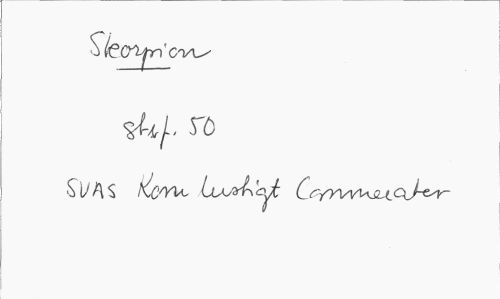 Skorpion
st.sp. 50
SVAS Kom lustigt Cammerater